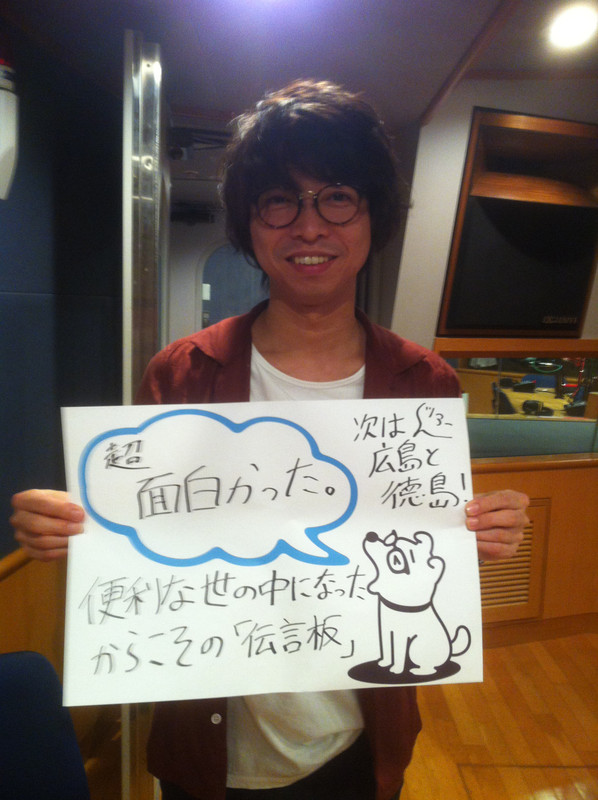 超
面白かった。
次は
広島と
徳島!
便利な世の中になった
からこその「伝言板」
A